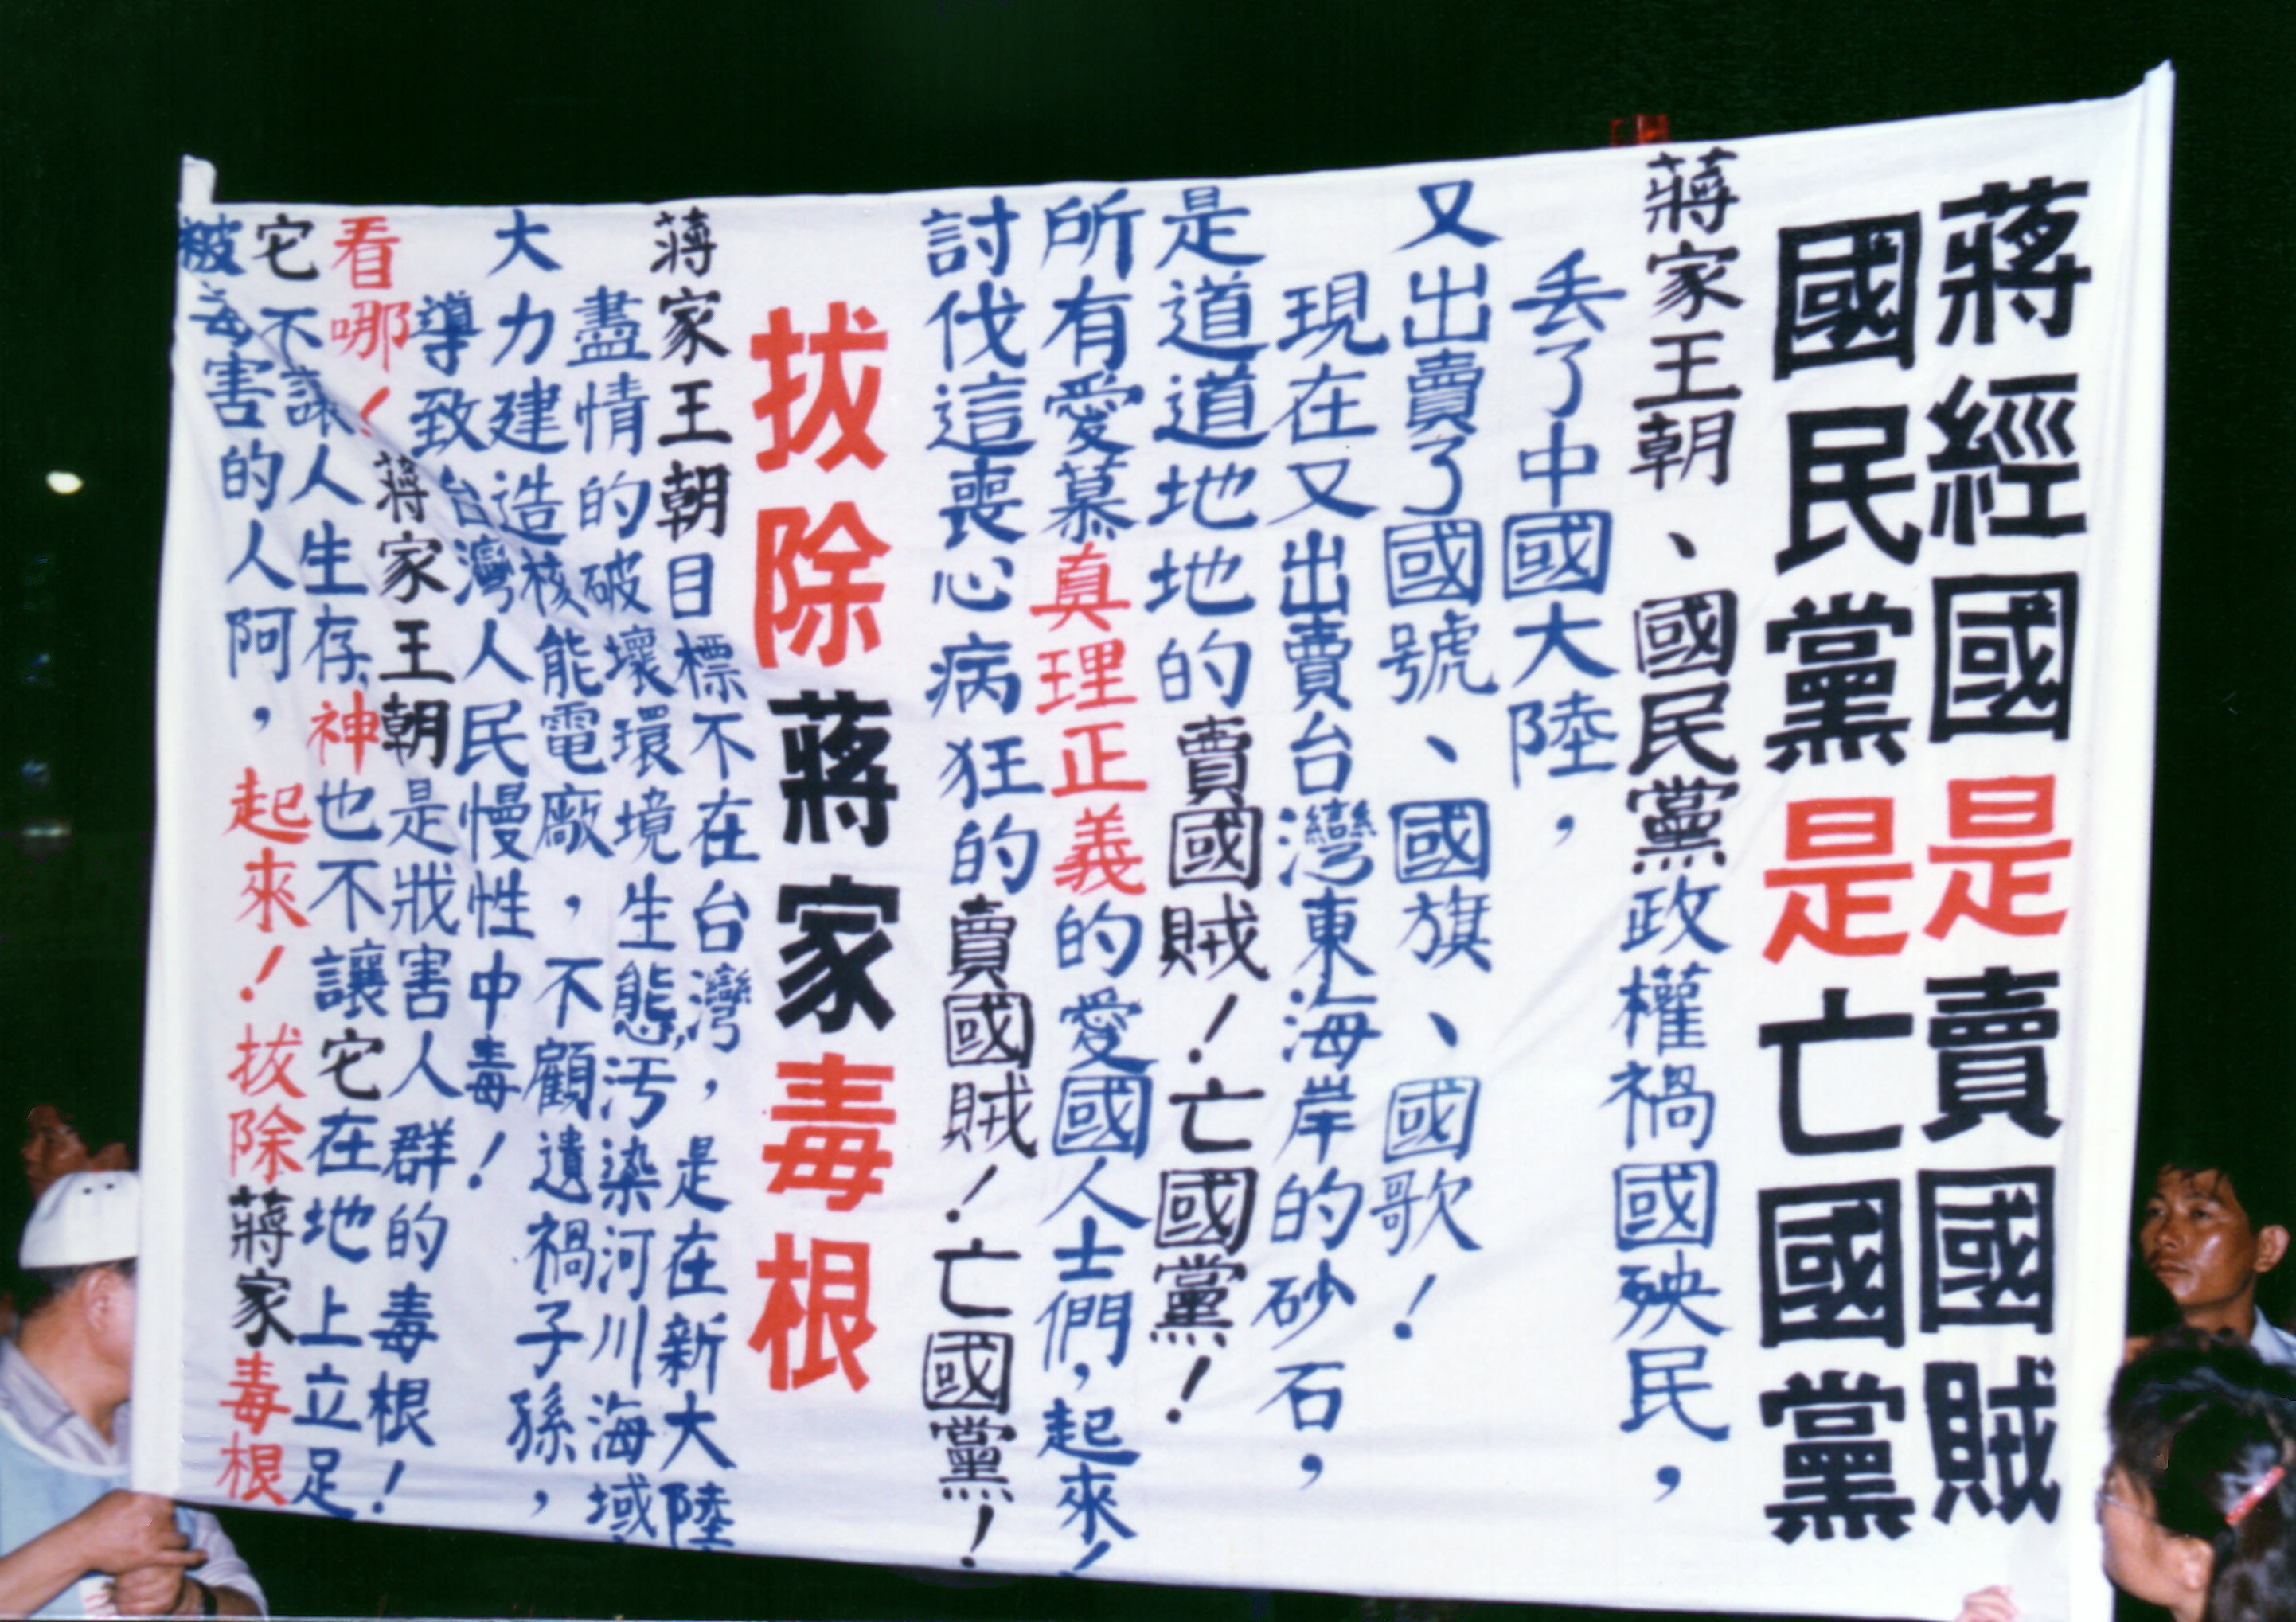 蔣經國是賣國賊
國民黨是亡國黨
蔣家王朝、國民黨政權禍國殃民，
丢了中國大陸，
又出賣了國號、國旗、國歌！
現在又出賣台灣東海岸的砂石，
是道道地地的賣國賊！亡國黨！
所有愛慕真理正義的愛國人士們，起來！
討伐這喪心病狂的賣國賊！亡國黨！
拔除蔣家毒根
蔣家王朝目標不在台灣，是在新大陸
盡情的破壞環境生態，污染河川海域
大力建造核能電廠，不顧遺禍子孫，
導致台灣人民慢性中毒！
看哪！蔣家王朝是戕害人群的毒根！
它不讓人生存，神也不讓它在地上立足
被毒害的人阿，起來！拔除蔣家毒根